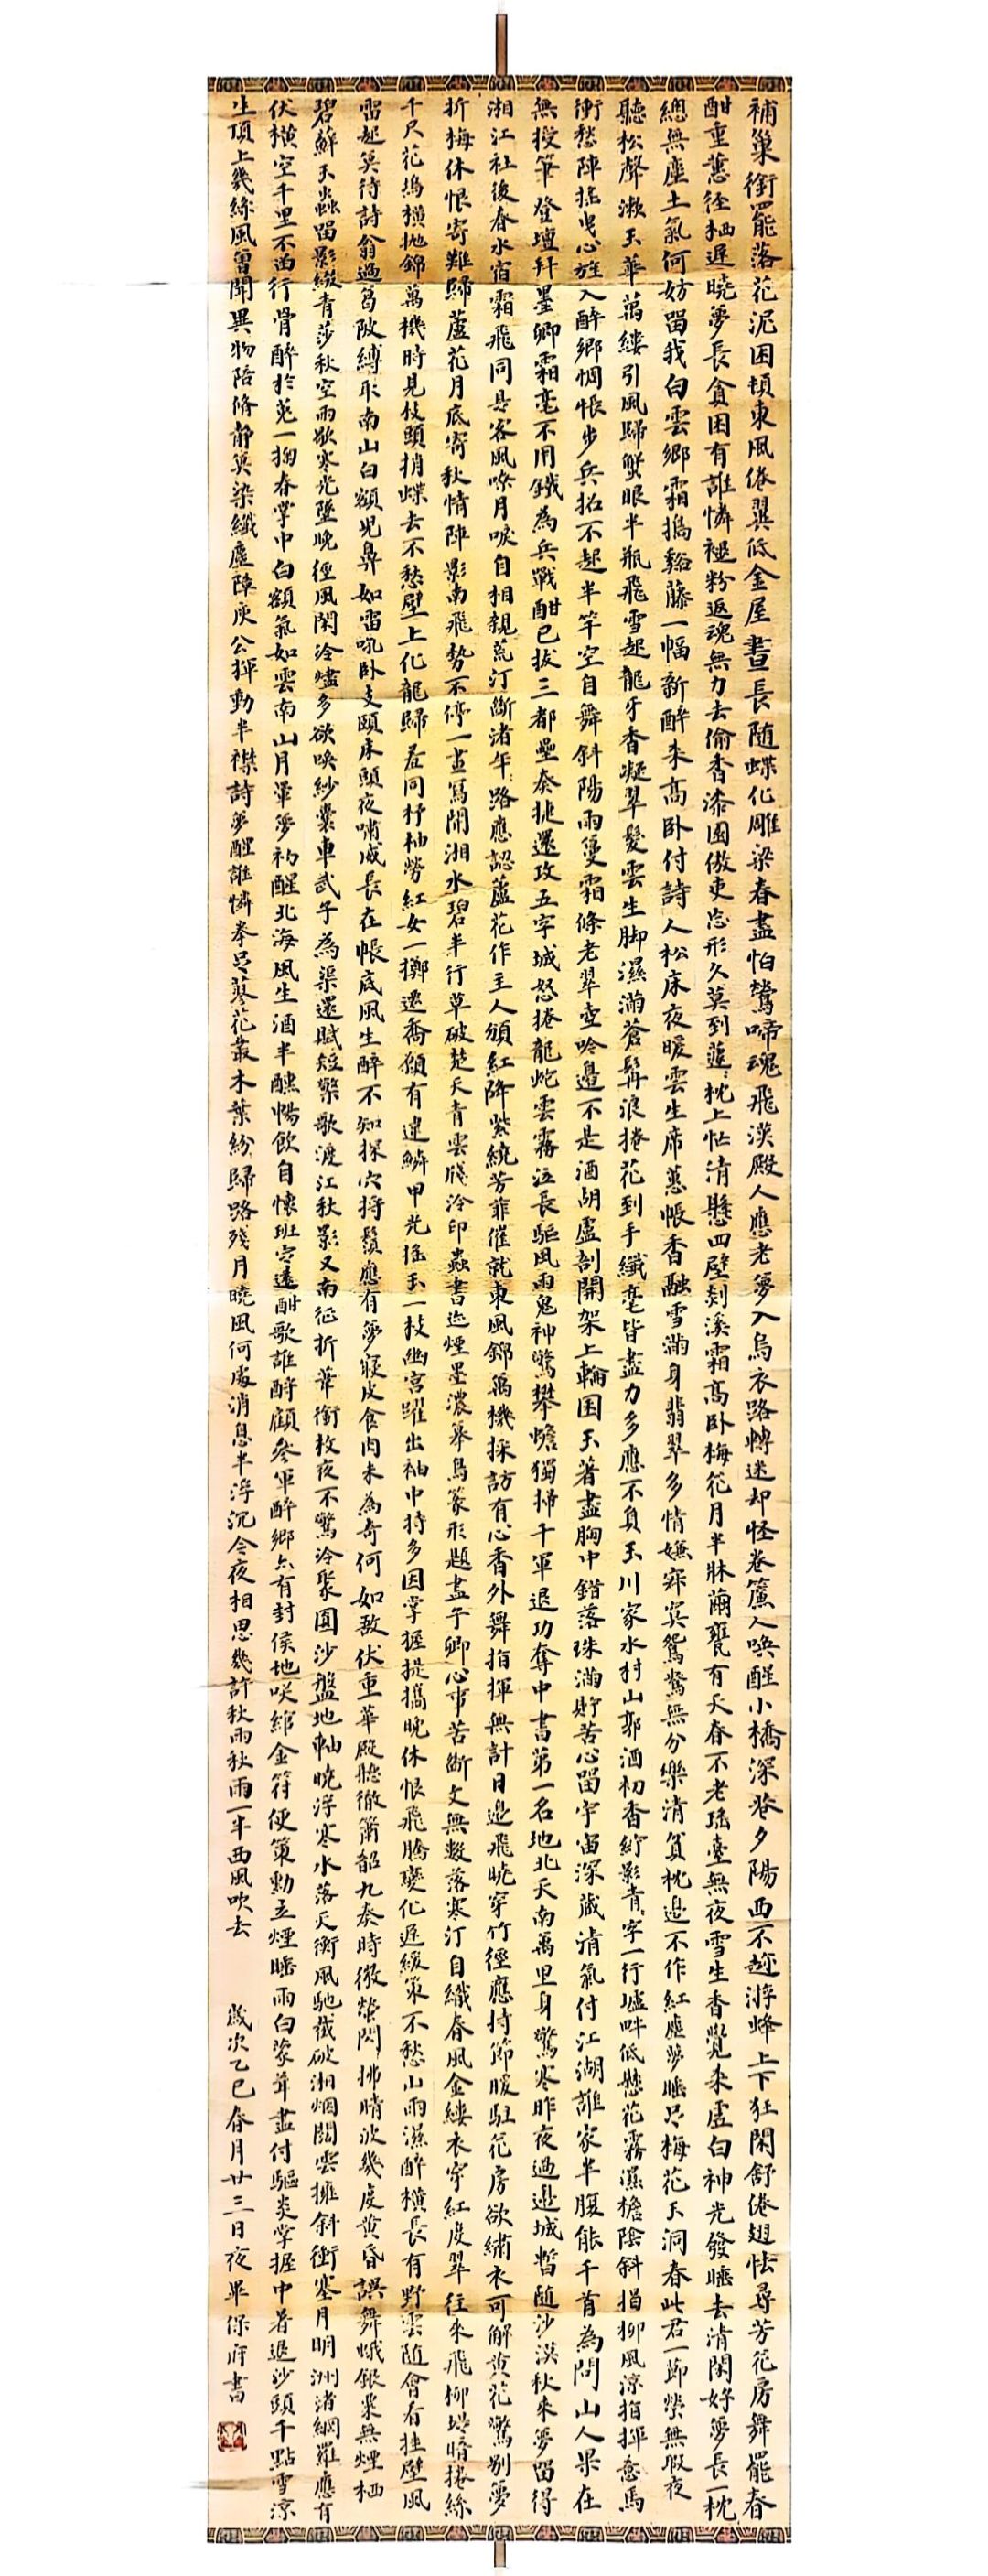 補巢銜罷落花泥困頓東風倦翼低金屋晝長随蝶化雕梁春盡怕鶯啼魂飛漢殿人應老夢入烏衣路轉迷却怪卷簾人喚醒小橋深巷夕陽西不趂游蜂上下狂閑舒倦翅怯尋芳花房舞罷春
酣重蕙径栖遲曉夢長貪困有誰憐褪粉返魂無力去偷香漆園傲吏忘形久莫到蘧:枕上忙清懸四壁剡溪霜高卧梅花月半牀繭甕有天春不老瑤臺無夜雪生香覺来虛白神光發睡去清閑好夢長一枕
總無塵土氣何妨留我白雲鄉霜搗谿藤一幅新醉来高卧付詩人松床夜暖雲生席蕙帳香融雪滿身翡翠多情嫌寂寞鴛鴦無分樂清貧枕边不作紅塵夢睡足梅花玉洞春此君一節瑩無瑕夜
聽松聲漱玉華萬縷引風歸蟹眼半瓶飛雪起龍牙香凝翠髮雲生脚濕滿蒼髯浪捲花到手纖毫皆盡力多應不負玉川家水村山郭酒初香紵影青:字一行壚畔低懸花霧濕檐陰斜揭柳風涼指揮意馬
衝愁陣搖曳心旌入醉鄉惆悵步兵招不起半竿空自舞斜陽雨蔓霜條老翠壺吟邊不是酒胡盧剖開架上輪囷玉著盡胸中錯落珠滿貯苦心留宇宙深藏清氣付江湖誰家半腹能千首為問山人果在
無授筆登壇幷墨卿霜毫不用鐵為兵戰酣已拔三都壘奏捷還攻五字城怒捲龍蛇雲霧泣長驅風雨鬼神驚攀蟾獨掃千軍退功奪中書第一名地北天南萬里身驚寒昨夜過邊城暫随沙漠秋来夢留得
湘江社後春水宿霜飛同是客風嘹月唳自相親荒汀斷渚年:路應認蘆花作主人頒紅降紫繞芳菲催就東風錦萬機採訪有心香外舞指揮無計日边飛曉穿竹徑應持節暖駐花房欲繡衣可解黄花驚別夢
折梅休恨寄難歸蘆花月底寄秋情陣影南飛勢不停一畫寫開湘水碧半行草破楚天青雲牋冷印蟲書迹煙墨濃摹鳥篆形題盡子卿心事苦斷文無數落寒汀自織春風金縷衣宇紅度翠往来飛柳堤暗捲絲
千尺花塢横抛錦萬機時見枝頭捎蝶去不愁壁上化龍歸君同杼柚勞紅女一擲遷喬願有違鱗甲光搖玉一枝幽宮躍出袖中持多因掌握提攜晚休恨飛騰變化遲緩策不愁山雨濕醉横長有野雲随會看挂壁風
雷起莫待詩翁過葛陂縛取南山白額兒鼻如雷吼卧支頤床頭夜嘯威長在帳底風生醉不知探穴捋鬚應有夢寢皮食肉未為奇何如敖伏重華殿聽徹簫韶九奏時微螢閃拂晴波幾度黄昏誤舞蛾銀粟無煙栖
碧蘚玉蟲留影綴青莎秋空雨歇寒光墜晚徑風閑冷燼多欲喚紗囊車武子為渠還賦短檠歌渡江秋影又南征折葦銜枚夜不驚冷聚圓沙盤地軸曉浮寒水落天衡風馳截破湘烟闊雲擁斜銜塞月明洲渚網羅應有
伏横空千里不函行骨醉於萸一掬春掌中白額氣如雲南山月暈夢初醒北海風生酒半醺暢飲自懷班定遠酣歌誰酹顧參軍醉鄉亦有封侯地咲綰金符便策勳立煙睡雨白蒙茸盡付驅炎掌握中暑退沙頭千點雪涼
生頂上幾絲風曾聞異物陪脩静莫染纖塵障庾公揮動半襟詩夢醒誰憐拳足蓼花叢木葉紛:歸路殘月曉風何處消息半浮沉今夜相思幾許秋雨秋雨一半西風吹去 歲次乙巳春月廿三日夜畢保府書